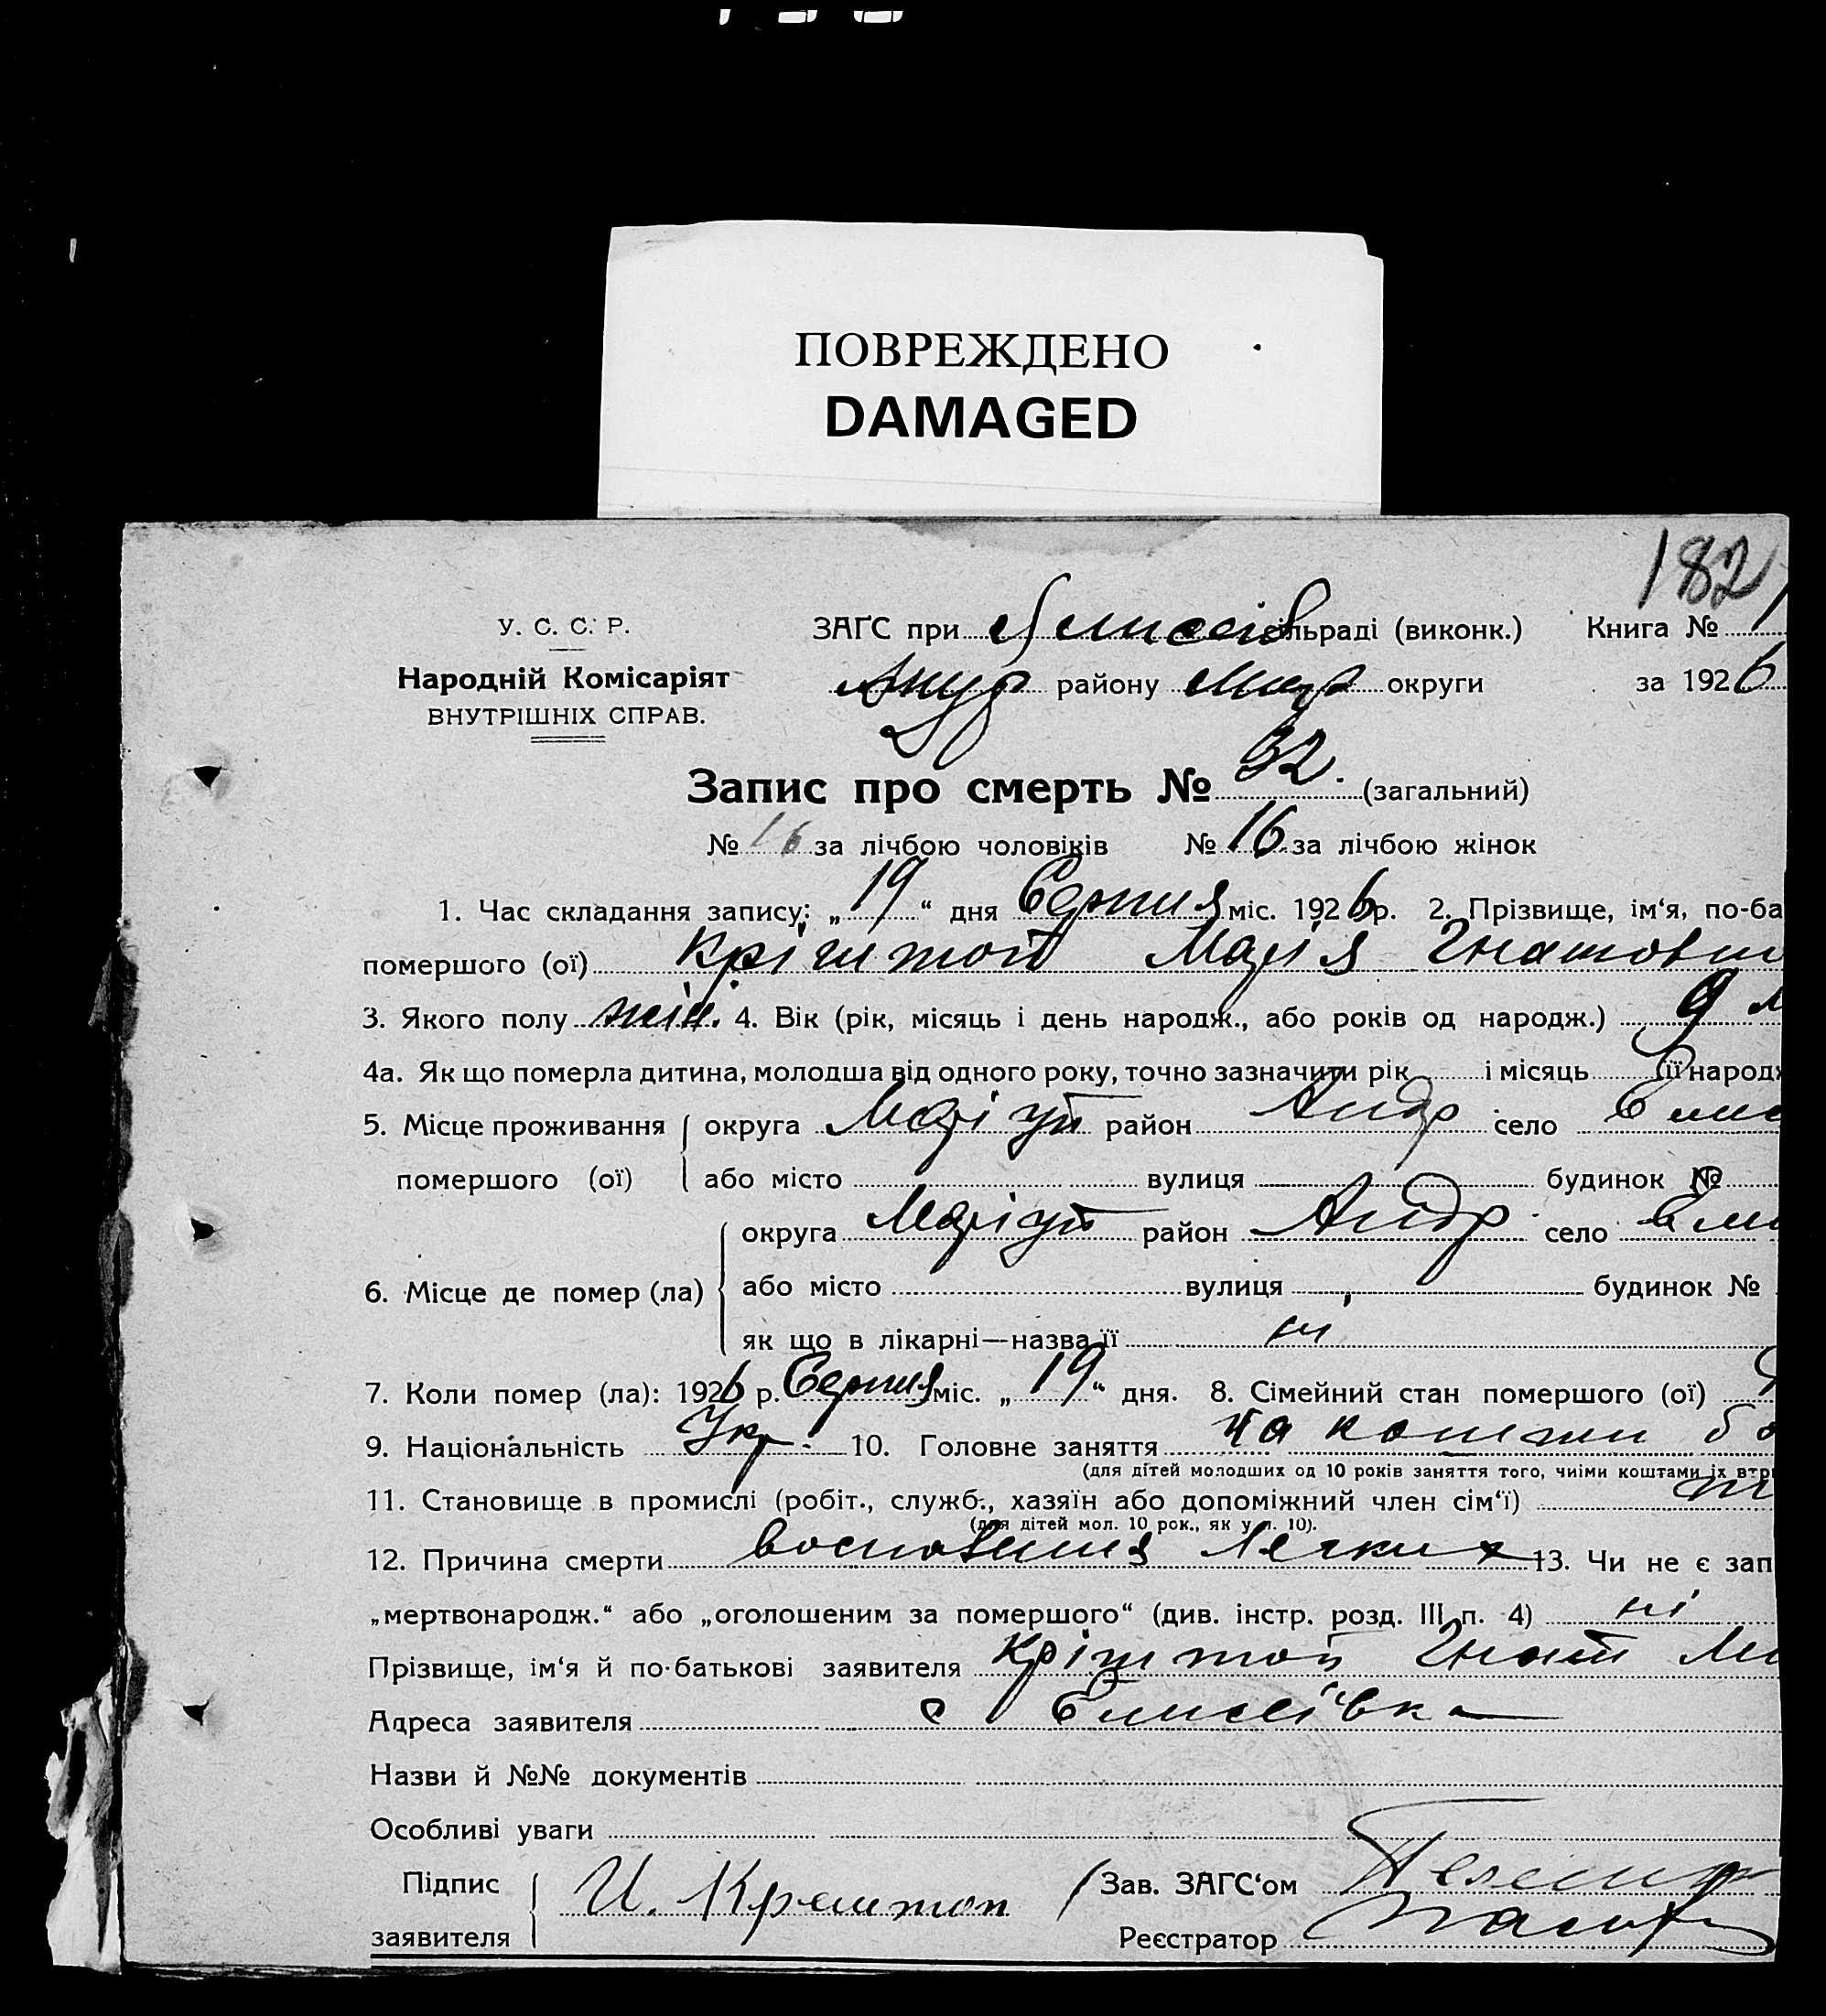 ПОВРЕЖДЕНО
DAMAGED
182
У. С. С. Р.
ЗАҐС при сільраді (виконк.) Книга № 1
Народній Комісаріят
району округи за 1926
ВНУТРІШНІХ СПРАВ.
Запис про смерть № 32. (загальний)
№ 16 за лічбою чоловіків № 16 за лічбою жінок
1. Час складання запису: „19“ дня Серпня міс. 1926 р. 2. Прізвище, ім‘я, по-ба
помершого (ої) Кріштоп Марія Гнатовн
3. Якого полу жін. 4. Вік (рік, місяць і день народж., або років од народж.) 9 м
4а. Як що померла дитина, молодша від одного року, точно зазначити рік і місяць її народж
5. Місце проживання округа Маріуп район Андр село Елис
помершого (ої) або місто вулиця будинок №
округа Маріуп район Андр село Ели
6. Місце де помер (ла) або місто вулиця будинок №
як що в лікарні—назва її ні
7. Коли помер (ла): 1926 р. Серпня міс. „19“ дня. 8. Сімейний стан помершого (ої)
9. Національність Укр. 10. Головне заняття на кошти ба
(для дітей молодших од 10 років заняття того, чиїми коштами їх втри
11. Становище в промислі (робіт., служб., хазяїн або допоміжний член сім‘ї)
(для дітей мол. 10 рок., як у п. 10).
12. Причина смерти воспаления Легких 13. Чи не є зап
„мертвонародж.“ або „оголошеним за помершого“ (див. інстр. розд. III п. 4) ні
Прізвище, ім‘я й по-батькові заявителя Кріштоп Гнат Ми
Адреса заявителя с Елисеївка
Назви й №№ документів
Особливі уваги
Підпис И. Крештоп Зав. ЗАҐС‘ом
заявителя Реєстратор